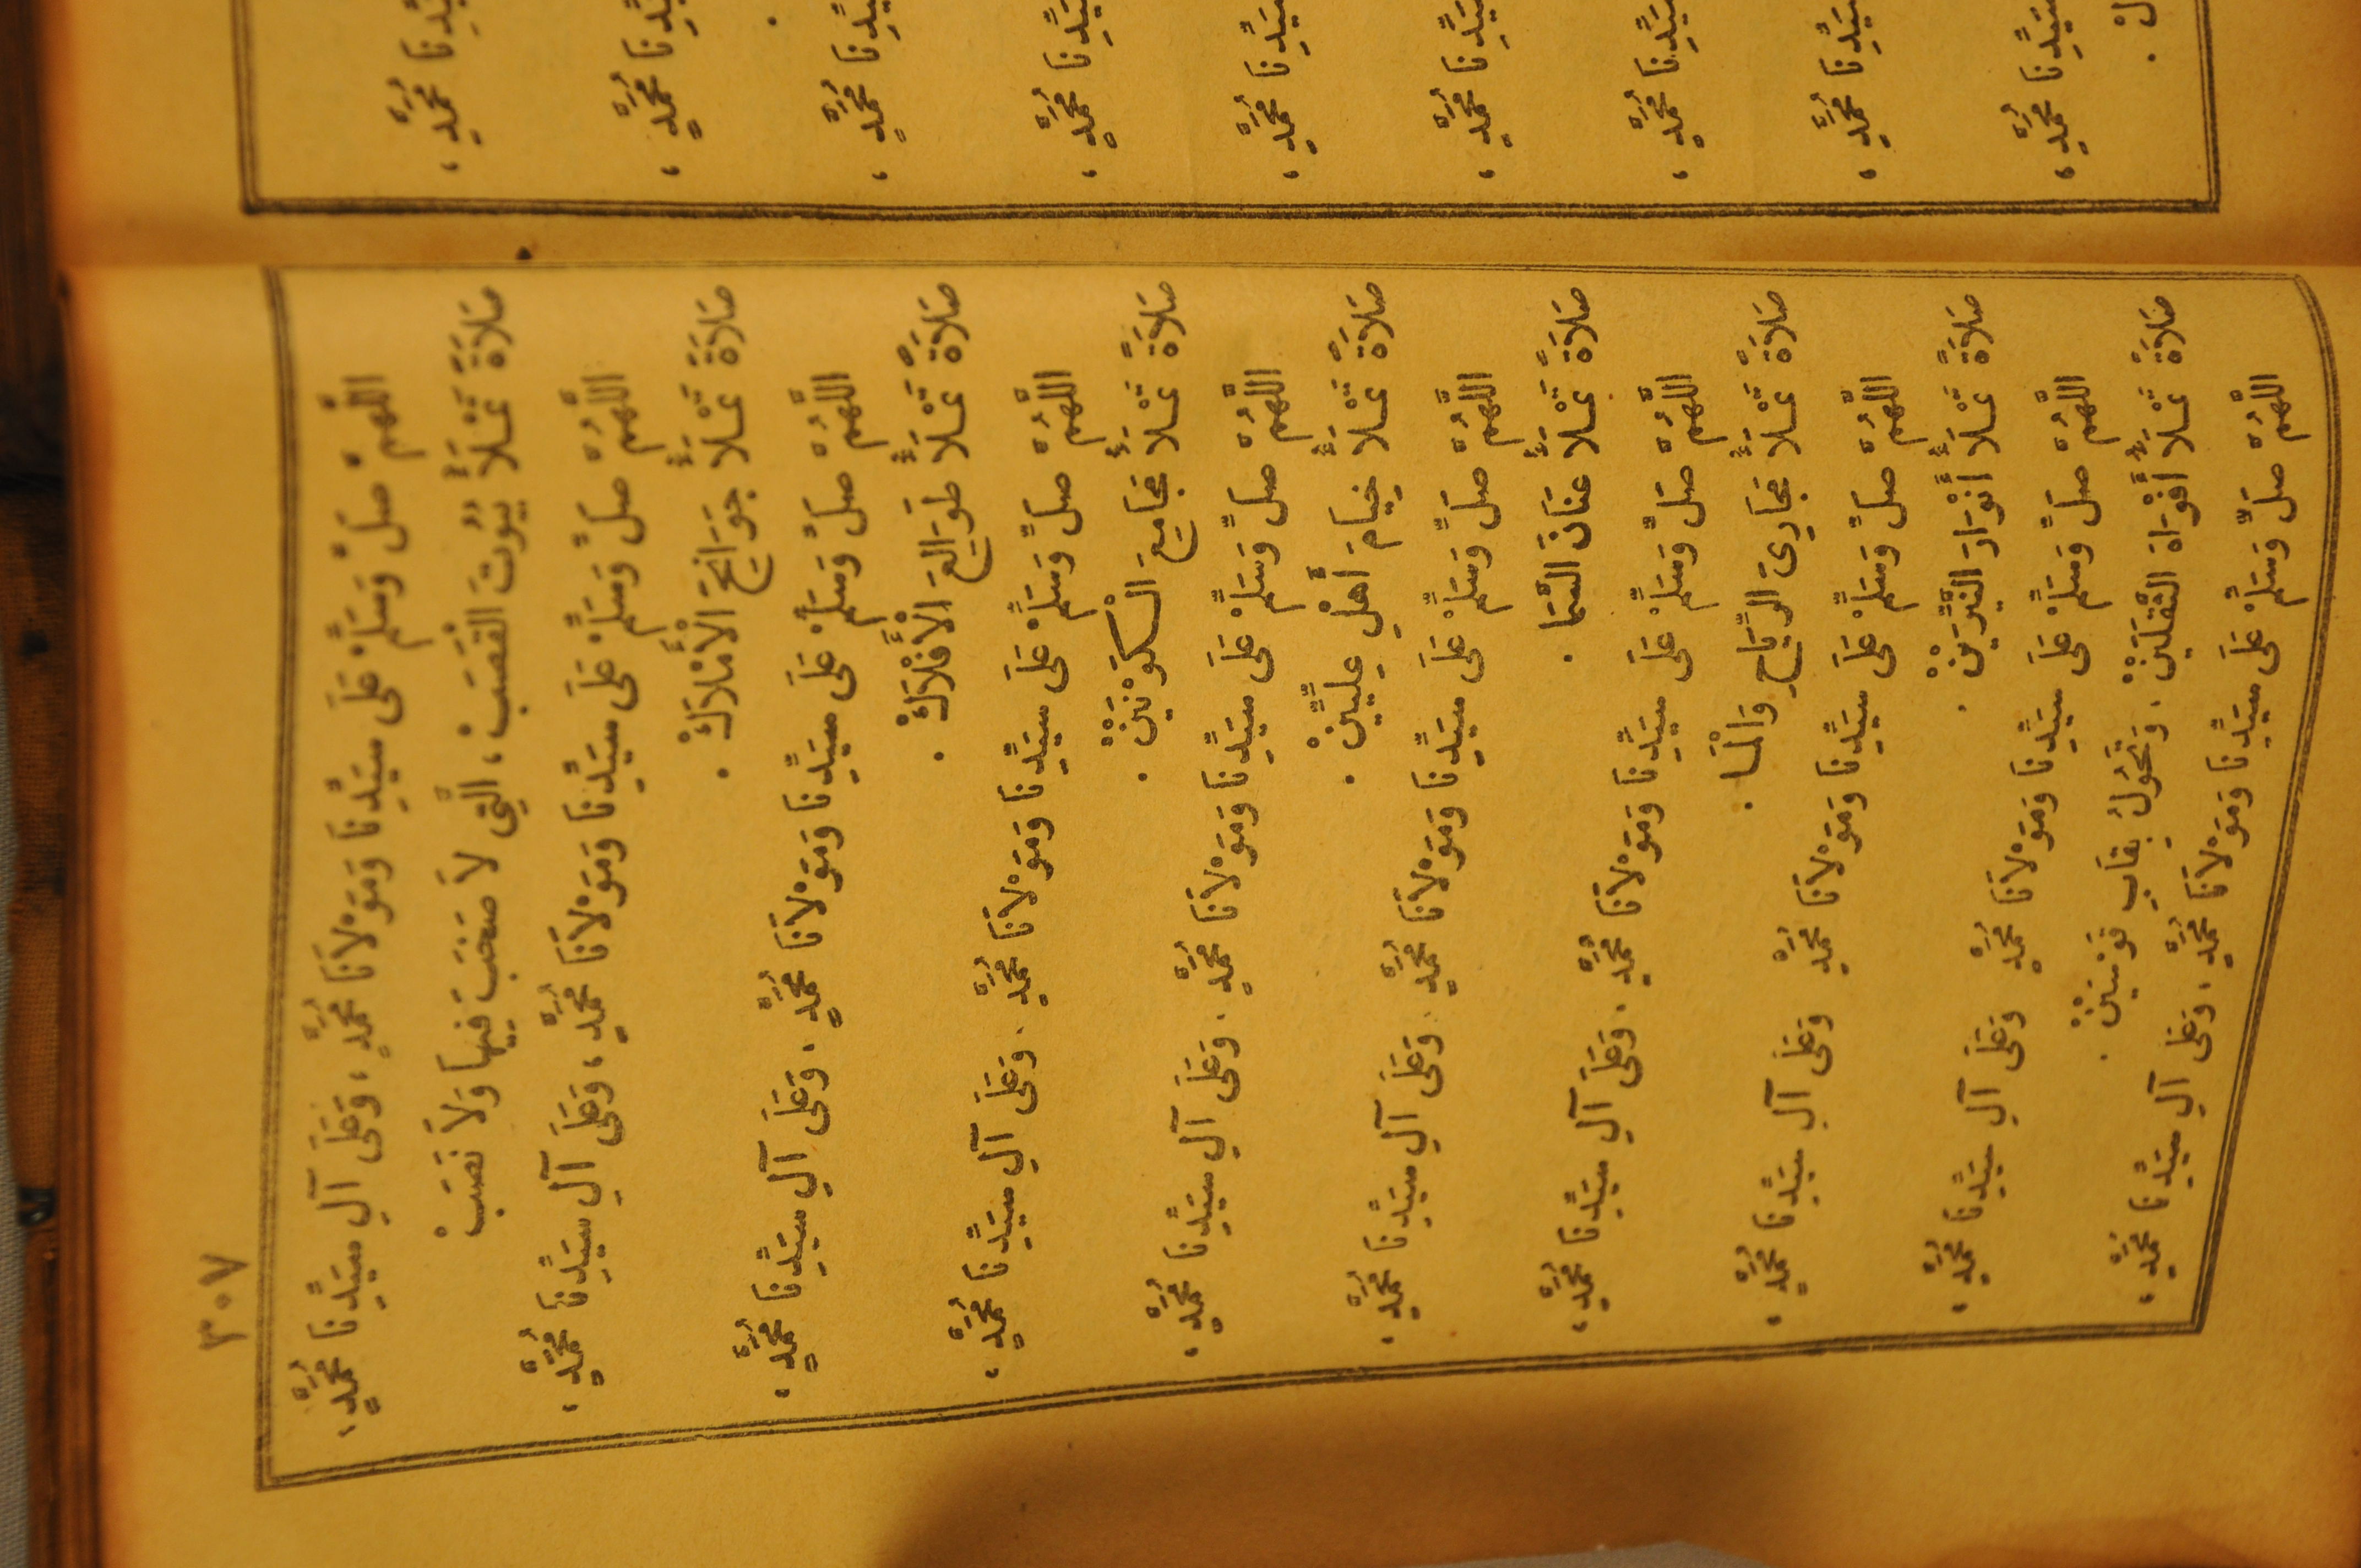 سَيِّدِنَا مُحَمَّدٍ،
سَيِّدِنَا مُحَمَّدٍ،
سَيِّدِنَا مُحَمَّدٍ،
سَيِّدِنَا مُحَمَّدٍ،
سَيِّدِنَا مُحَمَّدٍ،
سَيِّدِنَا مُحَمَّدٍ،
سَيِّدِنَا مُحَمَّدٍ،
سَيِّدِنَا مُحَمَّدٍ،
سَيِّدِنَا مُحَمَّدٍ،
٣٠٧
اللَّهُمَّ صَلِّ وَسَلِّمْ عَلَى سَيِّدِنَا وَمَوْلاَنَا مُحَمَّدٍ، وَعَلَى آلِ سَيِّدِنَا مُحَمَّدٍ،
صَلاَةً تَمْلَأُ بُيُوتَ الْقَصَبْ، الَّتِي لاَ صَخَبَ فِيهَا وَلاَ نَصَبْ
اللَّهُمَّ صَلِّ وَسَلِّمْ عَلَى سَيِّدِنَا وَمَوْلاَنَا مُحَمَّدٍ، وَعَلَى آلِ سَيِّدِنَا مُحَمَّدٍ،
صَلاَةً تَمْلَأُ جَوَانِحَ الْأَمْلاَكْ.
اللَّهُمَّ صَلِّ وَسَلِّمْ عَلَى سَيِّدِنَا وَمَوْلاَنَا مُحَمَّدٍ. وَعَلَى آلِ سَيِّدِنَا مُحَمَّدٍ،
صَلاَةً تَمْلَأُ طَوَالِعَ الْأَفْلاَكْ.
اللَّهُمَّ صَلِّ وَسَلِّمْ عَلَى سَيِّدِنَا وَمَوْلاَنَا مُحَمَّدٍ. وَعَلَى آلِ سَيِّدِنَا مُحَمَّدٍ،
صَلاَةً تَمْلَأُ مَجَامِيعَ الْكَوْنَيْنْ.
اللَّهُمَّ صَلِّ وَسَلِّمْ عَلَى سَيِّدِنَا وَمَوْلاَنَا مُحَمَّدٍ. وَعَلَى آلِ سَيِّدِنَا مُحَمَّدٍ،
صَلاَةً تَمْلَأُ خِيَامَ أَهْلِ عِلِّيِّينْ.
اللَّهُمَّ صَلِّ وَسَلِّمْ عَلَى سَيِّدِنَا وَمَوْلاَنَا مُحَمَّدٍ. وَعَلَى آلِ سَيِّدِنَا مُحَمَّدٍ،
صَلاَةً تَمْلَأُ عَنَانَ السَّمَا.
اللَّهُمَّ صَلِّ وَسَلِّمْ عَلَى سَيِّدِنَا وَمَوْلاَنَا مُحَمَّدٍ. وَعَلَى آلِ سَيِّدِنَا مُحَمَّدٍ،
صَلاَةً تَمْلَأُ مَجَارِيَ الرِّيَاحِ وَالْمَا.
اللَّهُمَّ صَلِّ وَسَلِّمْ عَلَى سَيِّدِنَا وَمَوْلاَنَا مُحَمَّدٍ وَعَلَى آلِ سَيِّدِنَا مُحَمَّدٍ،
صَلاَةً تَمْلَأُ أَنْوَارَ النَّيِّرَيْنْ.
اللَّهُمَّ صَلِّ وَسَلِّمْ عَلَى سَيِّدِنَا وَمَوْلاَنَا مُحَمَّدٍ وَعَلَى آلِ سَيِّدِنَا مُحَمَّدٍ،
صَلاَةً تَمْلَأُ أَفْوَاهَ الثَّقَلَيْنْ، وَتَجُولُ بِقَابِ قَوْسَيْنْ.
اللَّهُمَّ صَلِّ وَسَلِّمْ عَلَى سَيِّدِنَا وَمَوْلاَنَا مُحَمَّدٍ، وَعَلَى آلِ سَيِّدِنَا مُحَمَّدٍ،